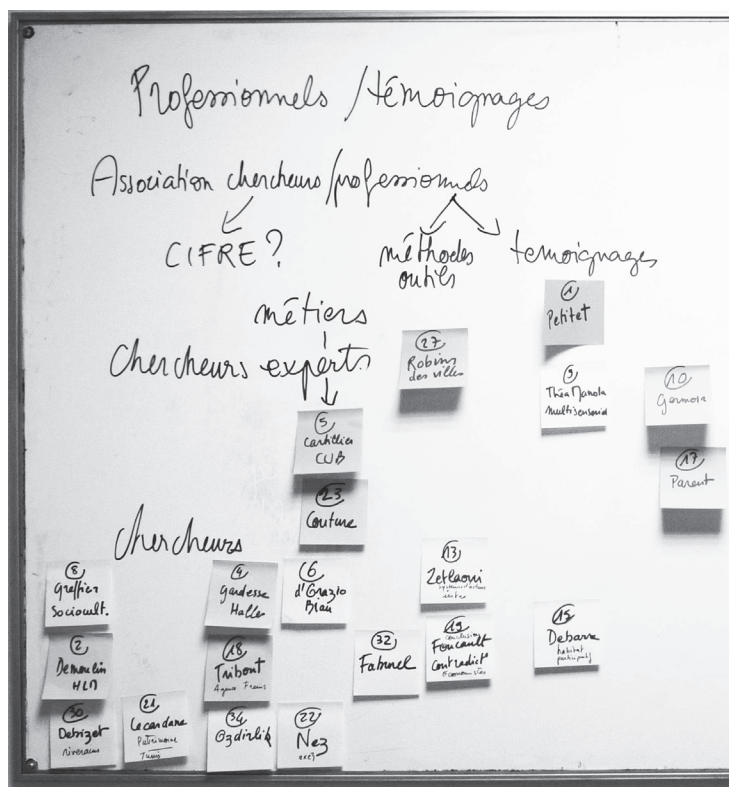 Professionnels / témoignages
Association chercheurs/professionnels
CIFRE ?
méthodes
outils
temoignages
métiers
chercheurs experts
27
Robins
des villes
1
Petitet
9
Théa Manola
multisensoriel
10
Germora
17
Parent
5
Cartillier
CUB
23
Couture
chercheurs
8
Greffier
Sociocult.
4
Gardesse
Halles
6
d'Orazio
Blau
13
Zetlaoui
2
Demoulin
HLM
18
Tribout
32
Faburel
19
conclusion
Foucault
contradict°
économistes
15
Debarre
habitat
participatif
30
Debizet
riverains
21
Lecardane
Patrimoine
Tunis
34
Ozdirlik
22
Nez